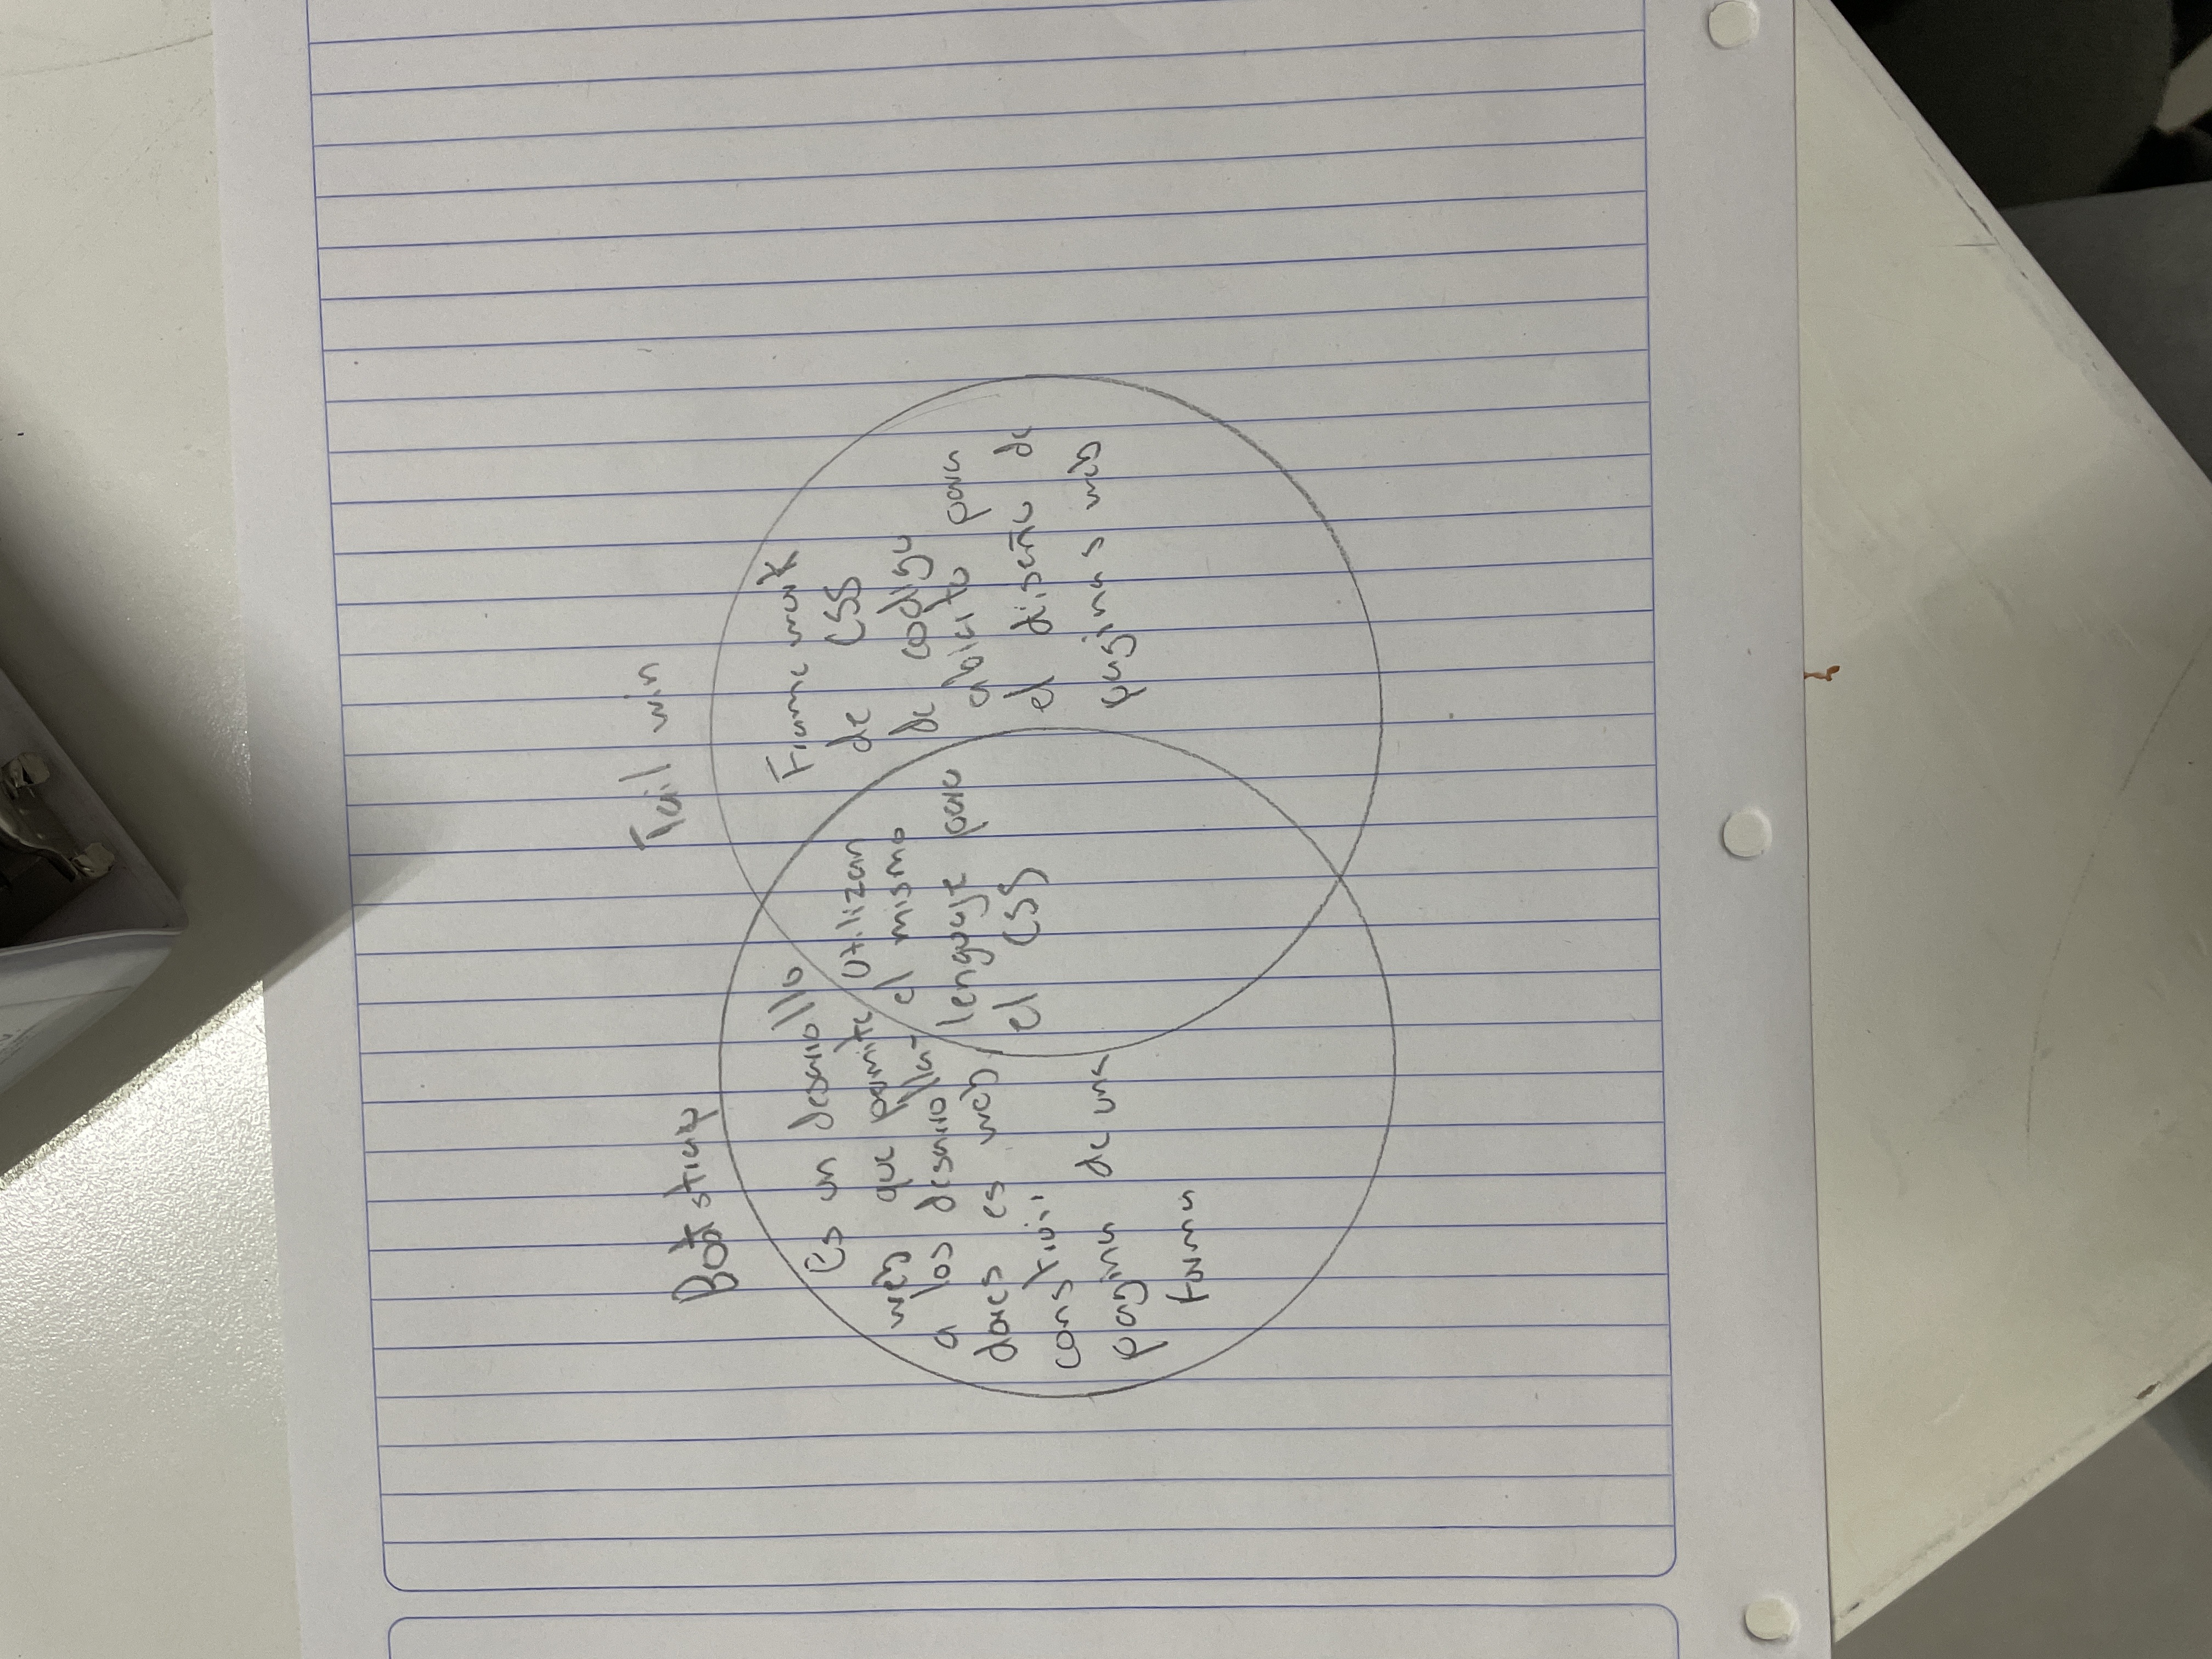 Bootstrap
Es un desarollo
web que permite
a los desarrolla
dores es web
construir
pagina de una
forma
Utilizan
el mismo
lenguaje para
el CSS
Tail win
Frame work
de CSS
de codigo
abierto para
el diseño de
paginas web